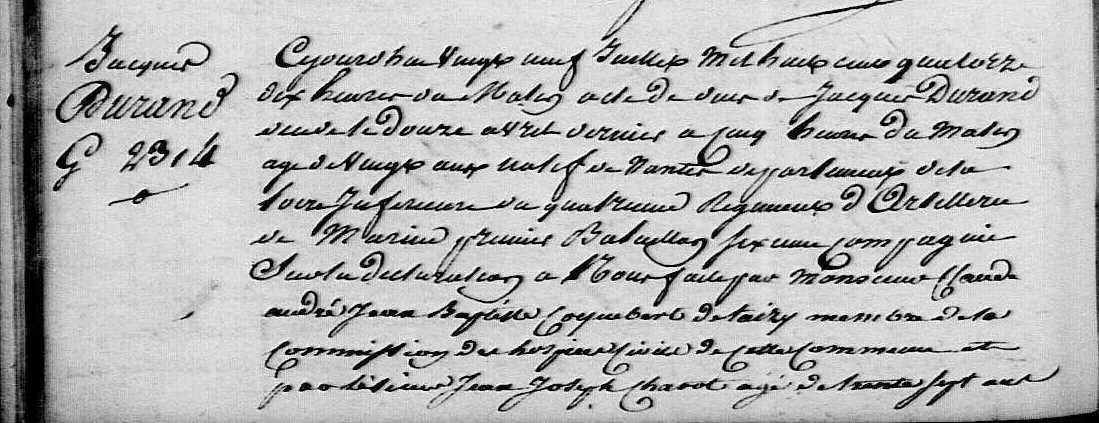 Jacques
Durand
G 2314
Cejourdhui Vingt neuf Juillet Mil huit cens quatorze
dix heures du Matin acte de décés de Jacques Durand
décédé le douze avril dernier a cinq heures du Matin
age de Vingt ans natif de Nantes departement de la
Loire Inferieure du quatrieme Regiment d'Artillerie
de Marine premier Bataillon sixieme compagnie
Sur la declaration a Nous faite par Monsieur Claude
andré Jean Baptiste Coquebert detaizy membre de la
Commission des hospices Civils de cette Commune et
par le sieur Jean Joseph Chavot agé de trente sept ans